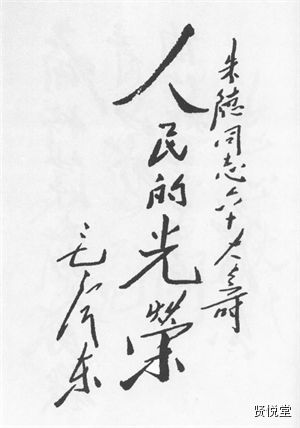 朱德同志六十大寿
人民的光榮
毛泽东
贤悦堂